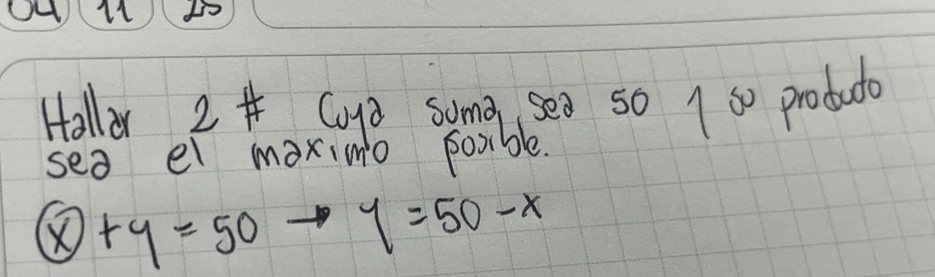 04 11 25
Hallar 2 # Cuya suma sea 50 y su producto
sea el maximo posible.
x + y = 50 → y = 50 - x